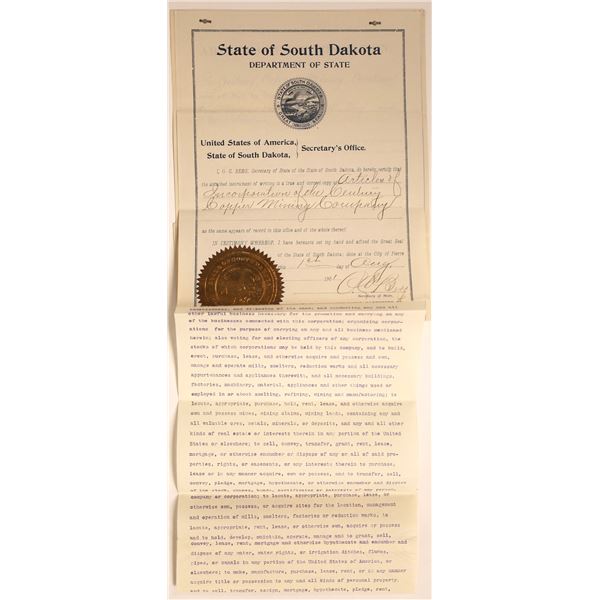 State of South Dakota
DEPARTMENT OF STATE
United States of America,
State of South Dakota,
Secretary's Office.
Secretary of State of the State of South Dakota, do hereby certify that
the annexed instrument of writing is a true and correct copy of Articles of
Incorporation of the Century
Copper Mining Company
as the same appears of record in this office and of the whole thereof.
IN TESTIMONY WHEREOF, I have hereunto set my hand and affixed the Great Seal
of the State of South Dakota, done at the City of Pierre
this 1st day of Aug
Secretary of State.
other lawful business necessary for the promotion and carrying on any
of the businesses connected with this corporation; organizing corpora-
tions for the purpose of carrying on any and all business mentioned
herein; also voting for and electing officers of any corporation, the
stocks of which corporations may be held by this company, and to build,
erect, purchase, lease, and otherwise acquire and possess and own,
manage and operate mills, smelters, reduction works and all necessary
appurtenances and appliances therewith, and all necessary buildings,
factories, machinery, material, appliances and other things used or
employed in or about smelting, refining, mining and manufacturing; to
locate, appropriate, purchase, hold, rent, lease, and otherwise acquire
own and possess mines, mining claims, mining lands, containing any and
all valuable ores, metals, minerals, or deposits, and any and all other
kinds of real estate or interests therein in any portion of the United
States or elsewhere; to sell, convey, transfer, grant, rent, lease,
mortgage, or otherwise encumber or dispose of any or all of said pro-
perties, rights, or easements, or any interests therein to purchase,
lease or in any manner acquire, own or possess, and to transfer, sell,
convey, pledge, mortgage, hypothecate, or otherwise encumber and dispose
company or corporation; to locate, appropriate, purchase, lease, or
otherwise own, possess, or acquire sites for the location, management
and operation of mills, smelters, factories or reduction works; to
locate, appropriate, rent, lease, or otherwise own, acquire or possess
and to hold, develop, maintain, operate, manage and to grant, sell,
convey, lease, rent, mortgage and otherwise hypothecate and encumber and
dispose of any water, water rights, or irrigation ditches, flumes,
pipes, or canals in any portion of the United States of America, or
elsewhere; to make, manufacture, purchase, lease, rent, or in any manner
acquire title or possession to any and all kinds of personal property,
and to sell, transfer, assign, mortgage, hypothecate, pledge, rent,